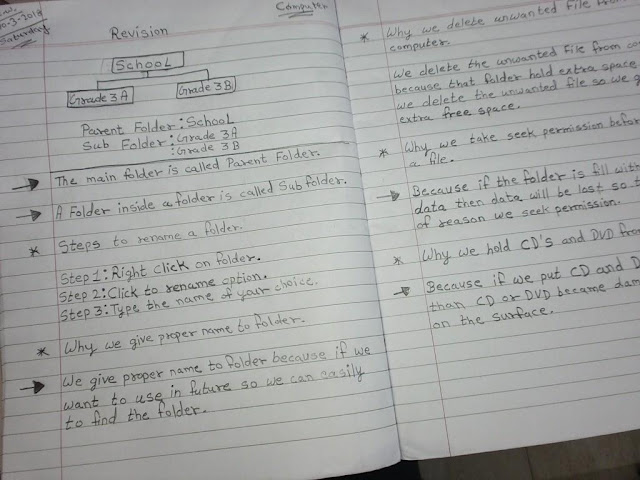 Saturday
Computer
Revision
School
Grade 3A
Grade 3B
Parent Folder : School
Sub Folder : Grade 3A
: Grade 3B
→ The main folder is called Parent Folder.
→ A Folder inside a folder is called Sub folder.
* Steps to rename a folder.
Step 1: Right Click on folder.
Step 2: Click to rename option.
Step 3: Type the name of your choice.
* Why we give proper name to folder.
→ We give proper name to folder because if we
want to use in future so we can easily
to find the folder.
* Why we delete unwanted file from
computer.
We delete the unwanted file from
because that folder hold extra space
we delete the unwanted file so we
extra free space.
* Why we take seek permission
a file.
→ Because if the folder is fill with
data then data will be lost so
of reason we seek permission.
* Why we hold CD's and DVD from
→ Because if we put CD and
than CD or DVD became
on the surface.